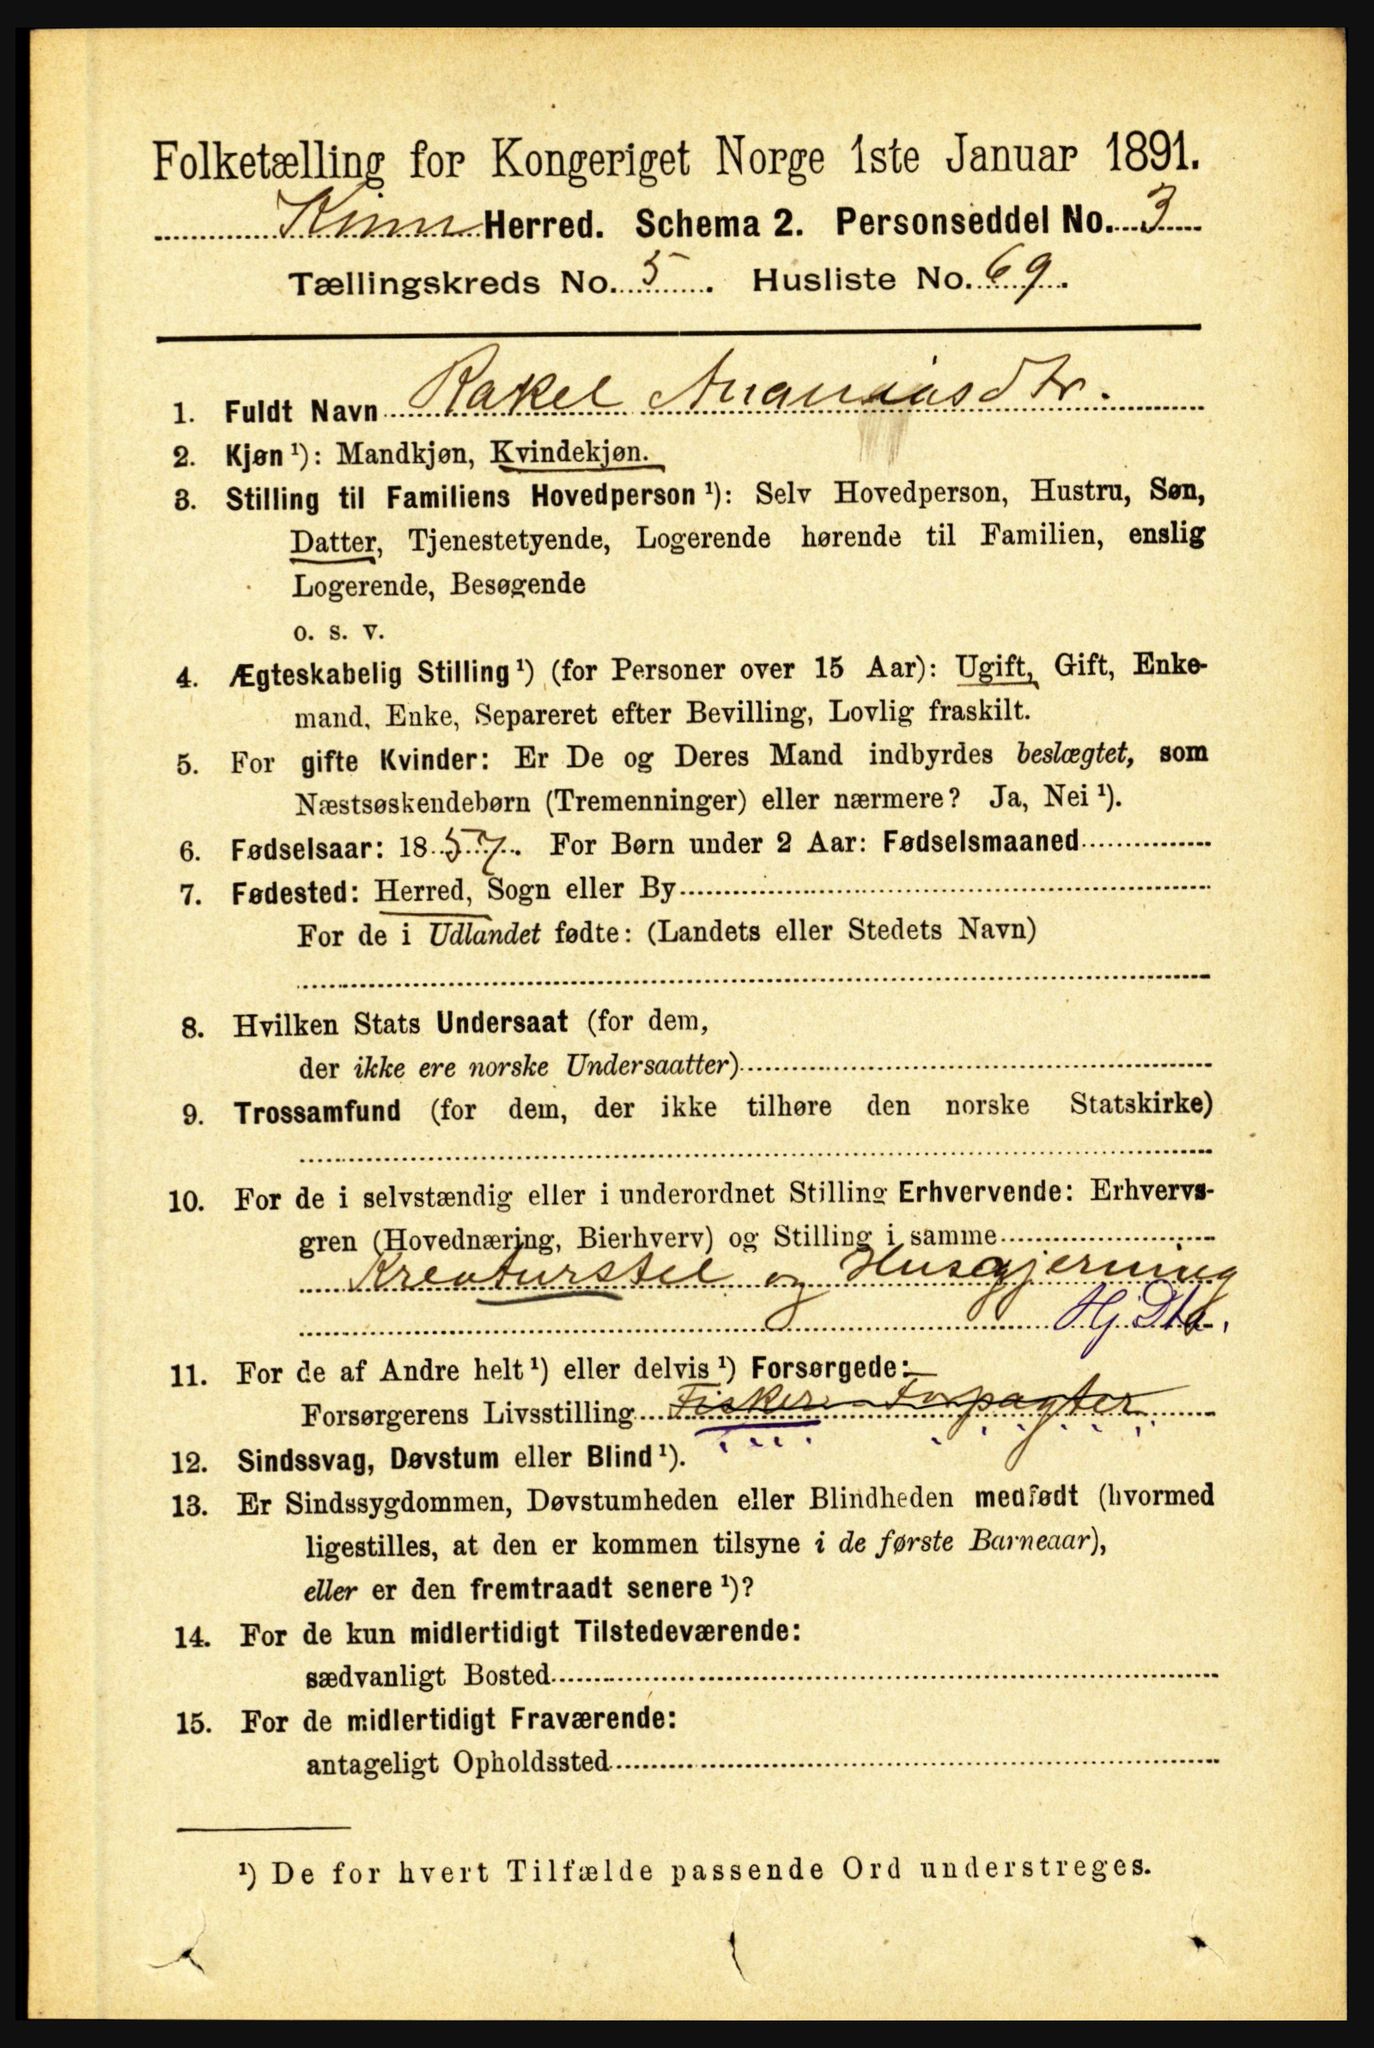 Folketælling for Kongeriget Norge 1ste Januar 1891.
Kinn Herred. Schema 2. Personseddel No. 3
Tællingskreds No. 5. Husliste No. 69.
1. Fuldt Navn Rakel Ananiasdtr.
2. Kjøn ¹): Mandkjøn, Kvindekjøn.
3. Stilling til Familiens Hovedperson ¹): Selv Hovedperson, Hustru, Søn,
Datter, Tjenestetyende, Logerende hørende til Familien, enslig
Logerende, Besøgende
o. s. v.
4. Ægteskabelig Stilling ¹) (for Personer over 15 Aar): Ugift, Gift, Enke-
mand, Enke, Separeret efter Bevilling, Lovlig fraskilt.
5. For gifte Kvinder: Er De og Deres Mand indbyrdes beslægtet, som
Næstsøskendebørn (Tremenninger) eller nærmere? Ja, Nei ¹).
6. Fødselsaar: 1857. For Børn under 2 Aar: Fødselsmaaned
7. Fødested: Herred, Sogn eller By
For de i Udlandet fødte: (Landets eller Stedets Navn)
8. Hvilken Stats Undersaat (for dem,
der ikke ere norske Undersaatter)
9. Trossamfund (for dem, der ikke tilhøre den norske Statskirke)
10. For de i selvstændig eller i underordnet Stilling Erhvervende: Erhvervs-
gren (Hovednæring, Bierhverv) og Stilling i samme
Kreaturstel og Husgjerning
Hj.
11. For de af Andre helt ¹) eller delvis ¹) Forsørgede:
Forsørgerens Livsstilling Fisker Forpagter
12. Sindssvag, Døvstum eller Blind ¹).
13. Er Sindssygdommen, Døvstumheden eller Blindheden medfødt (hvormed
ligestilles, at den er kommen tilsyne i de første Barneaar),
eller er den fremtraadt senere ¹)?
14. For de kun midlertidigt Tilstedeværende:
sædvanligt Bosted
15. For de midlertidigt Fraværende:
antageligt Opholdssted
¹) De for hvert Tilfælde passende Ord understreges.